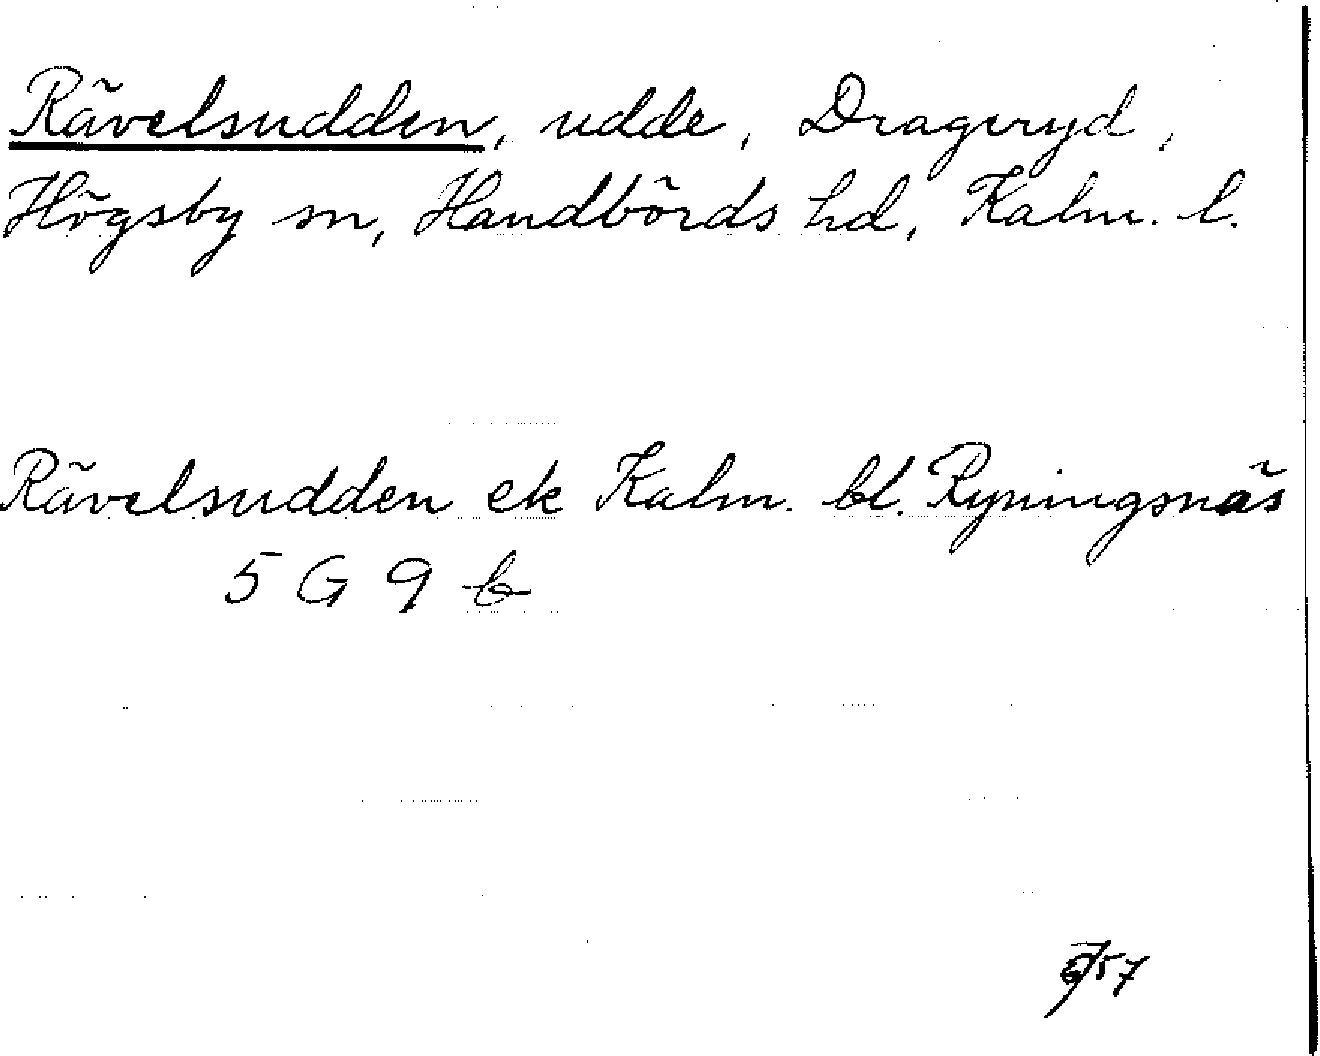 Rävelsudden, udde, Drageryd,
Högsby sn, Handbörds hd, Kalm. l.
Rävelsudden ek Kalm. bl. Ryningsnäs
5 G 9 b